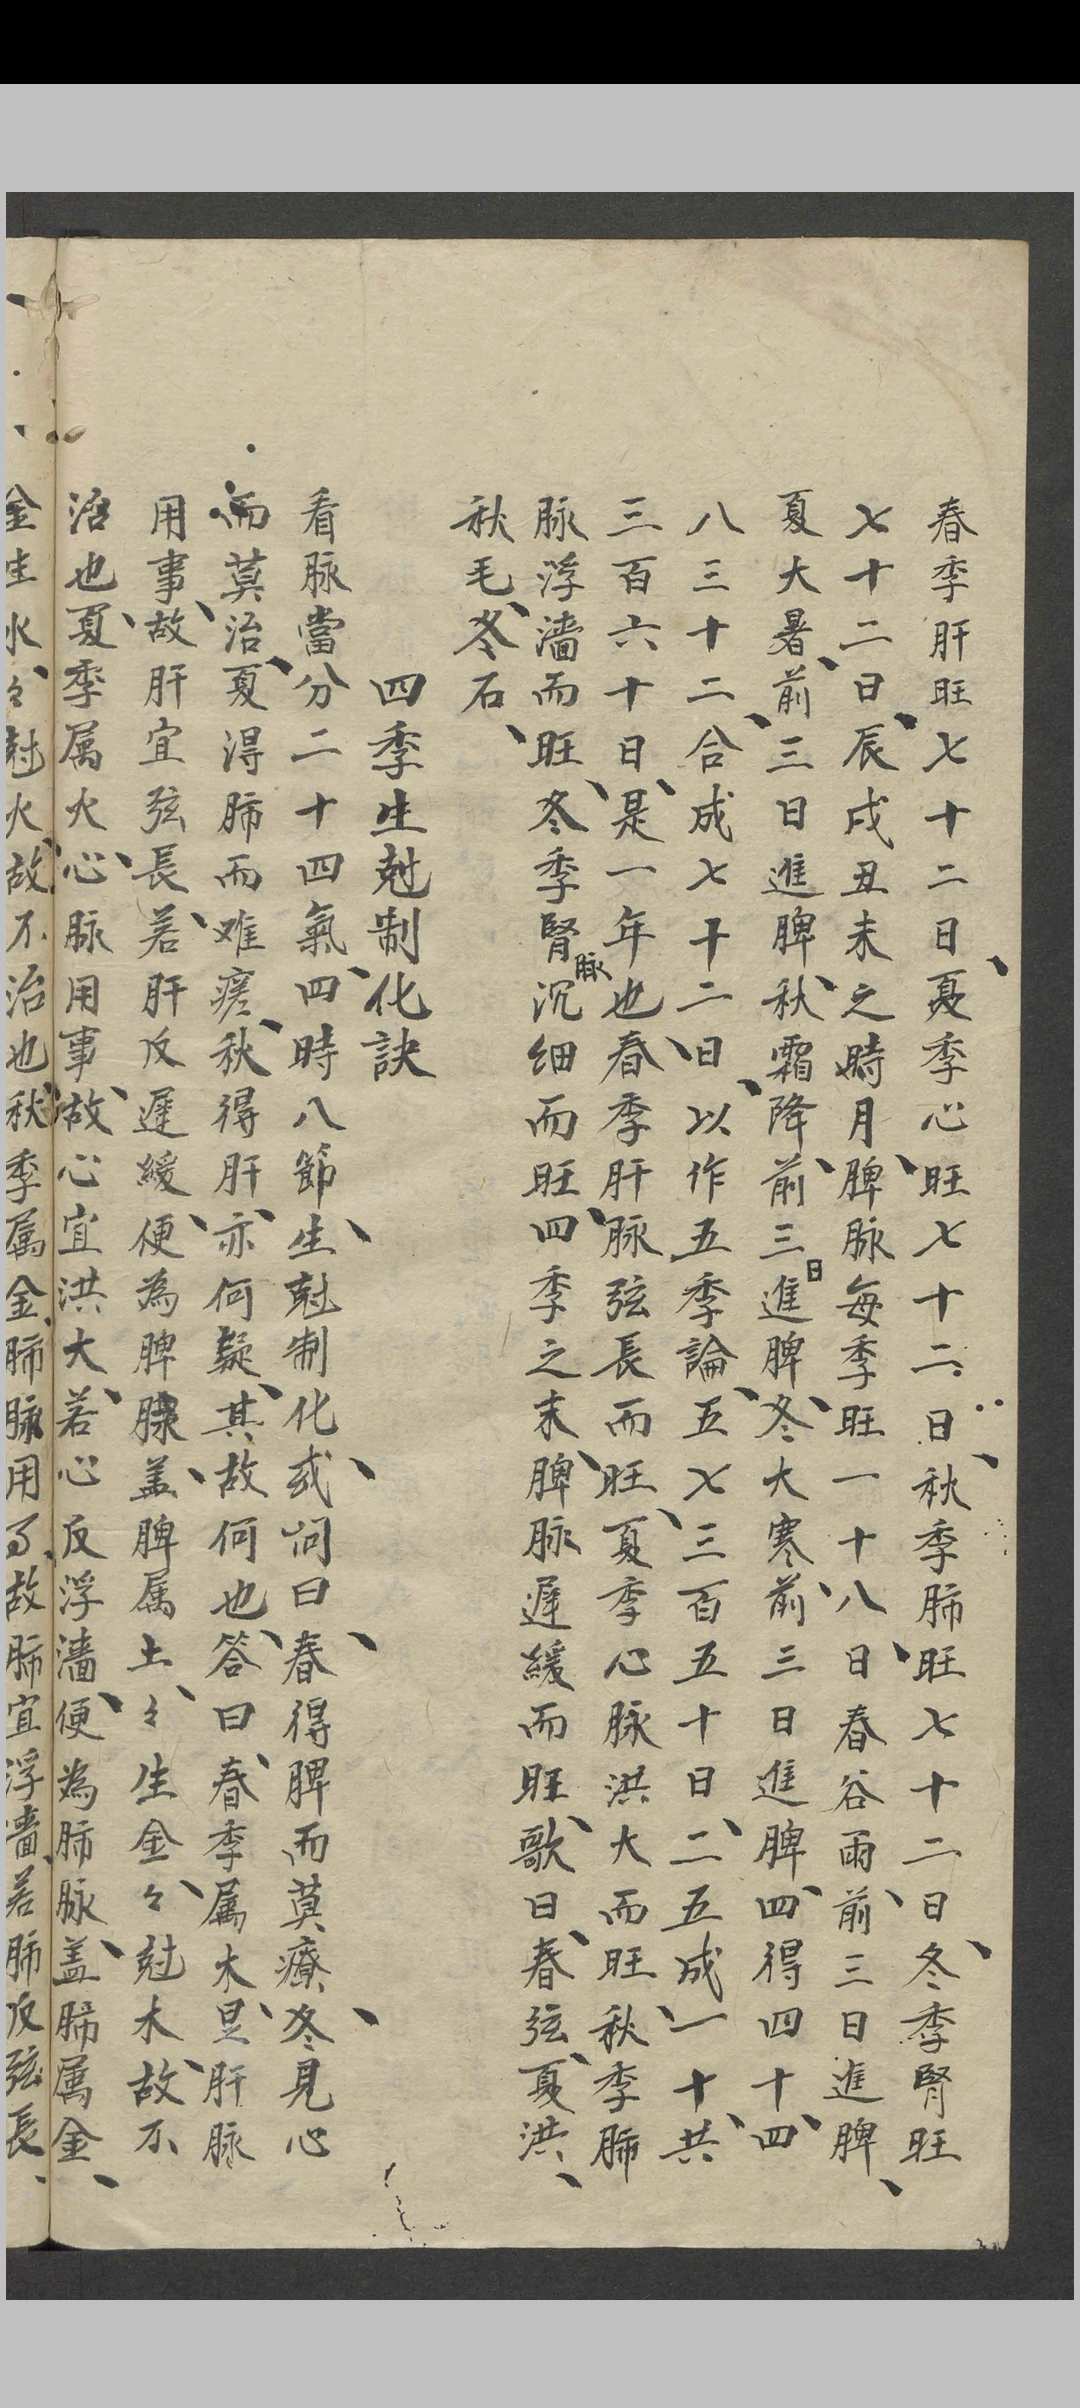 春季肝旺七十二日夏季心旺七十二日秋季肺旺七十二日冬季腎旺
七十二日辰戌丑未之時月脾脉每季旺一十八日春谷雨前三日進脾
夏大暑前三日進脾秋霜降前三日進脾冬大寒前三日進脾四得四十四
八三十二合成七十二日以作五季論五七三百五十日二五成一十共
三百六十日是一年也春季肝脉弦長而旺夏季心脉洪大而旺秋季肺
脉浮濇而旺冬季腎脉沉细而旺四季之末脾脉遲緩而旺歌曰春弦夏洪
秋毛冬石
四季生尅制化訣
看脉當分二十四氣四時八節生尅制化或问曰春得脾而莫療冬見心
而莫治夏得肺而难瘥秋得肝亦何疑其故何也答曰春季属木是肝脉
用事故肝宜弦長若肝反遲緩便為脾脉盖脾属土々生金々尅木故不
治也夏季属火心脉用事故心宜洪大若心反浮濇便為肺脉盖肺属金
金生水々尅火故不治也秋季属金肺脉用了故肺宜浮濇若肺反弦長